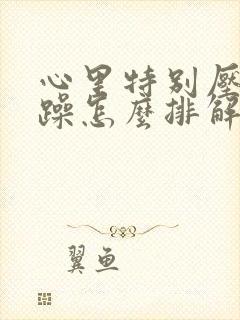 心里特别压
躁怎麼排解
翼鱼